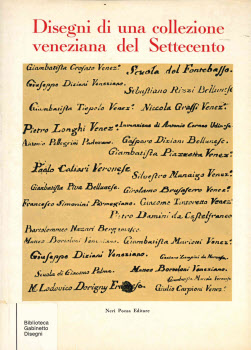 Disegni di una collezione
veneziana del Settecento
Giambatista Crosato Venez.º
Scuola del Fontebasso.
Giuseppe Diziani Veneziano.
Sebastiano Rizzi Bellunese
Giambatista Tiepolo Venez.º
Niccola Grassi Venez.º
Pietro Longhi Venez.º
Antonio Pellegrini Padovano.
Gasparo Diziani Bellunese.
Giambatista Piazzetta Venez.º
Paolo Caliari Veronese
Silvestro Manaigo Venez.º
Giambatista Pitoni
Girolamo Brusaferro Venez.º
Francesco Simonini Parmegiano.
Giacomo Tintoretto Venez.º
Pietro Damini da Castelfranco
Bartolommeo Nazari Bergamasco
Marco Bortoloni Veneziano.
Giambatista Mariotti Venez.º
Giuseppe Diziani Veneziano.
Scuola di Giacomo Palma.
Mateo Bortoloni Veneziano.
M. Lodovico Dorigny
Giulio Carpioni Venez.º
Neri Pozza Editore
Biblioteca
Gabinetto
Disegni